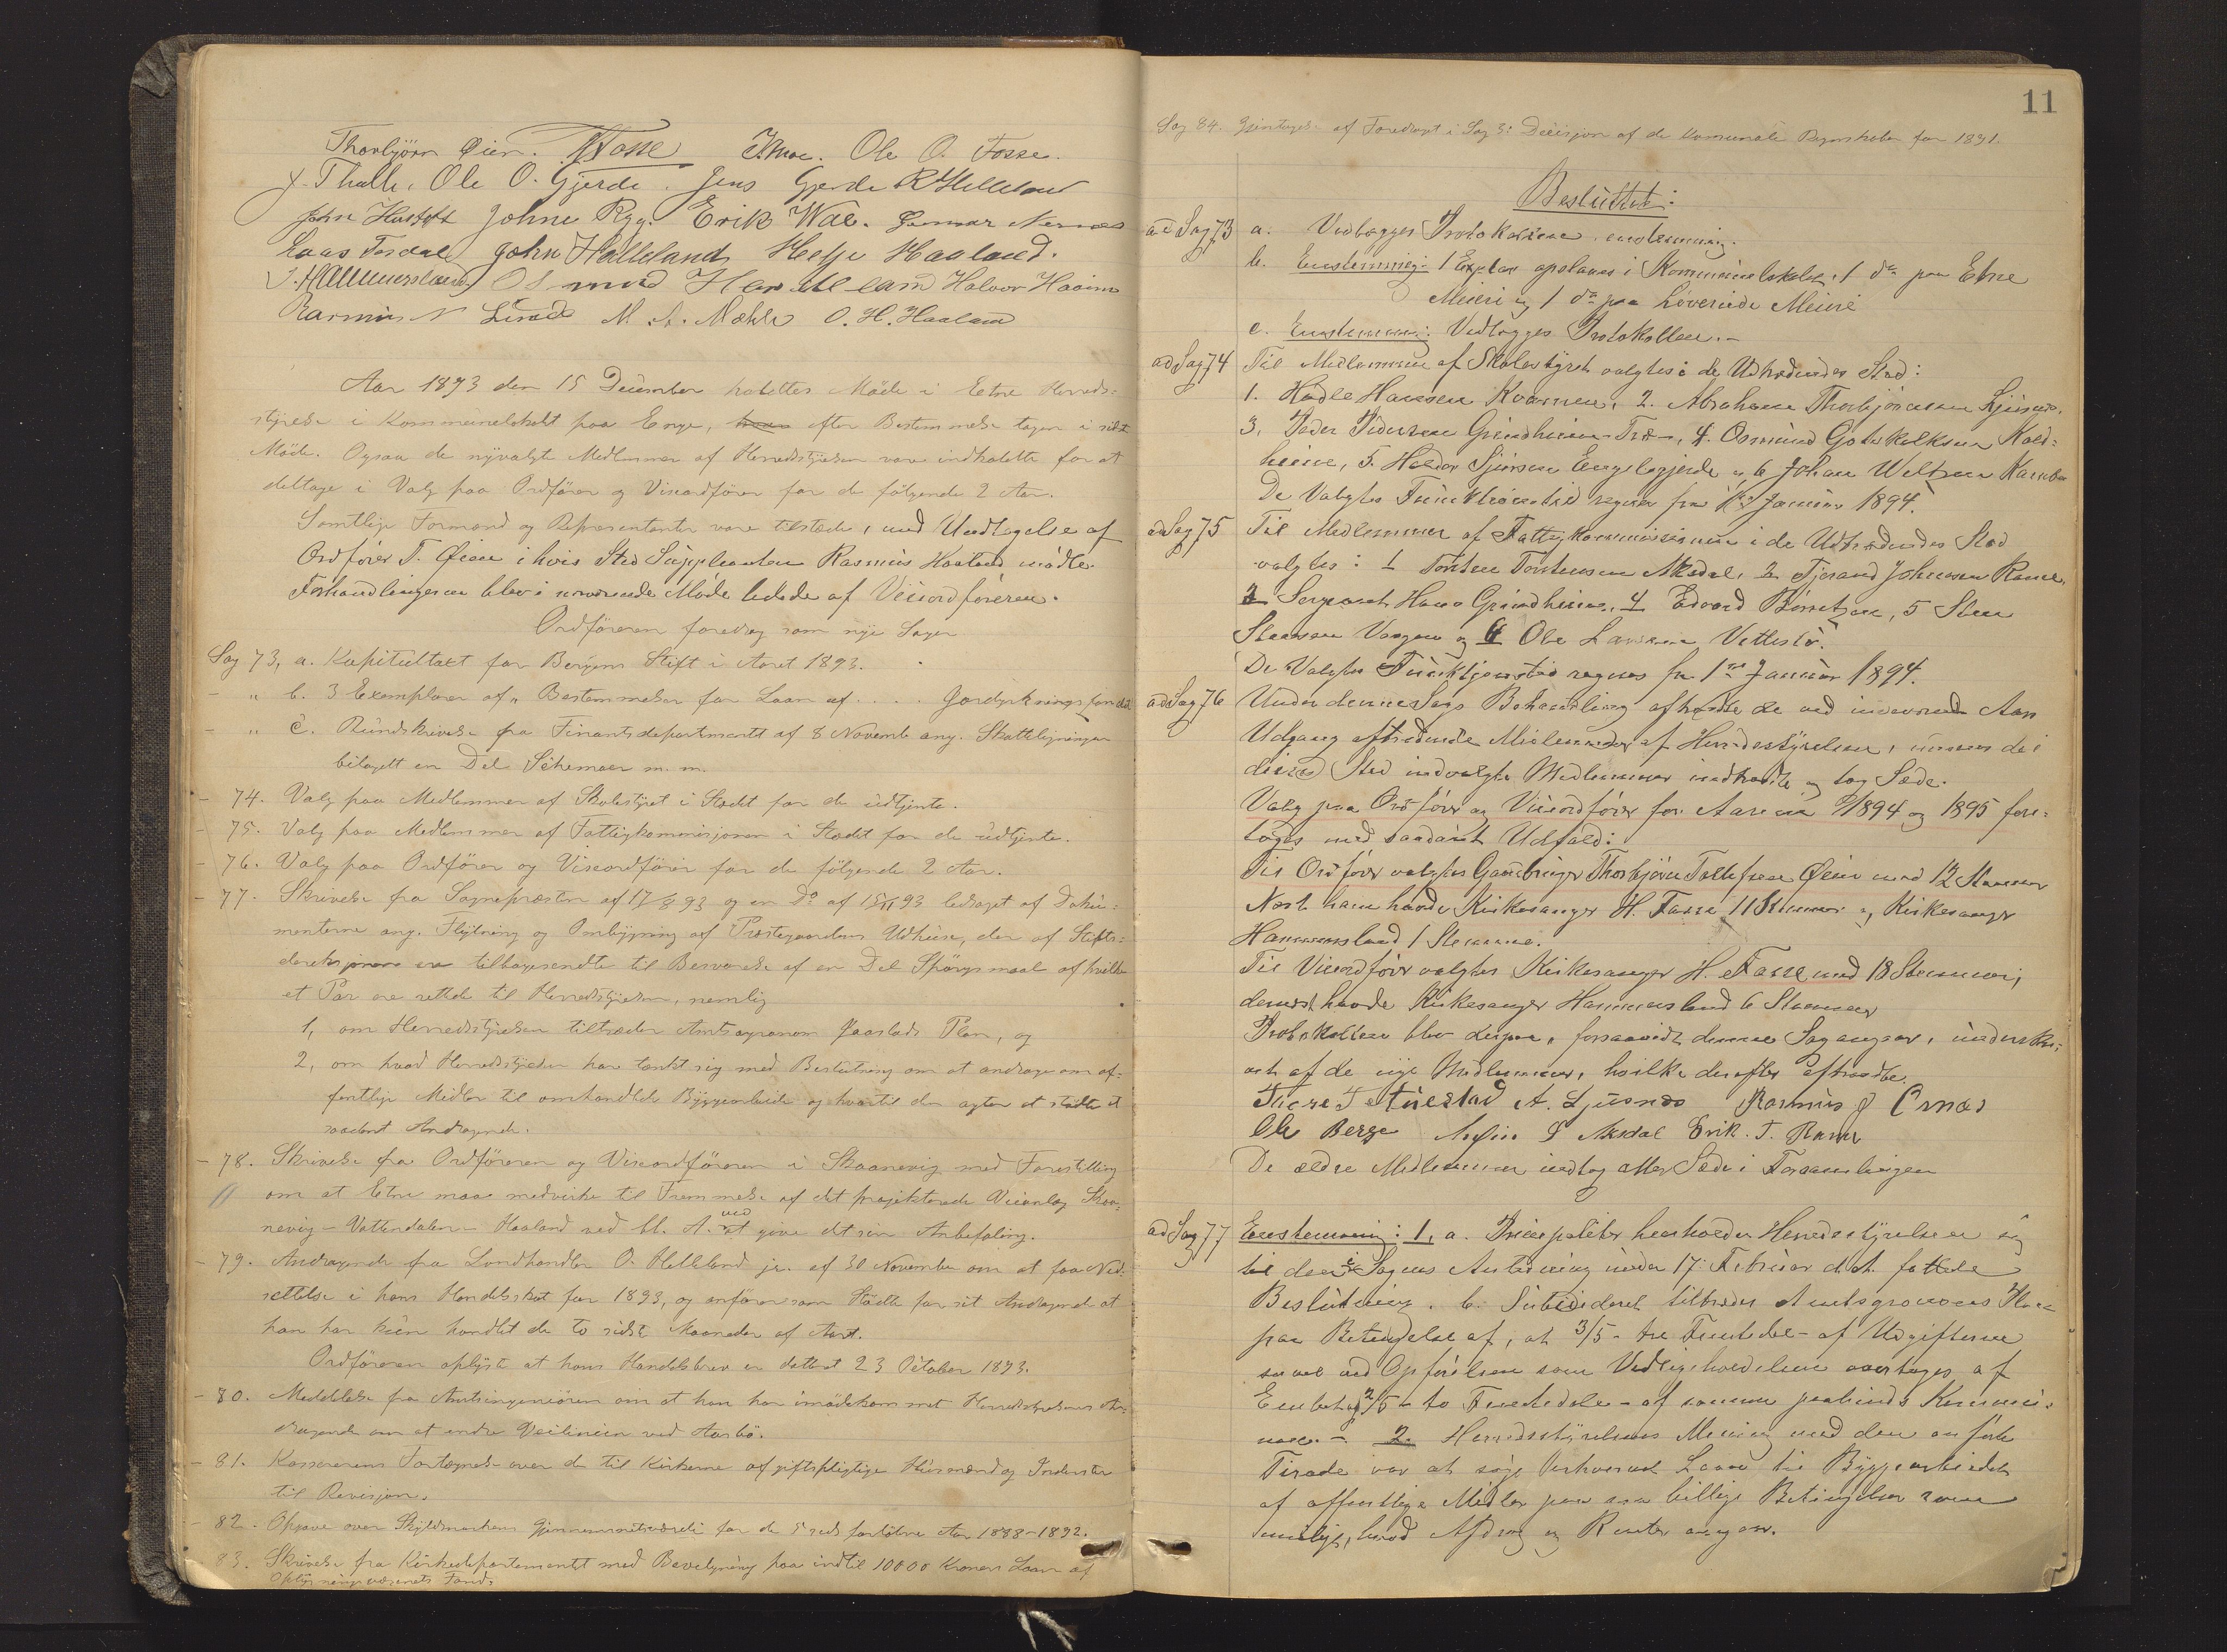 Thorbjörn Øien. HFosse J.Moe. Ole O. Fosse.
J. Thalle, Ole O. Gjerde. Jens Gjerde R Helleland
John Hustoft Johne Rygg. Erik Wåe. Gunnar Nernæs
Laas Tesdal John Hålleland Helje Haaland.
J. Hammersland Osmund Halleland Halvor Haaim
Rasmus N Lunde M. A. Mæhle O. H. Haaland
Aar 1893 den 15 December holdttes Möde i Etne Herreds-
styrelse i Kommunelokalet paa Enge, efter Bestemmelse tagen i sidste
Möde. Ogsaa de nyvalgte Medlemmer af Herredsstyrelsen vare indkaldte for at
deltage i Valg paa Ordförer og Viceordförer for de fölgende 2 Aar.
Samtlige Formænd og Repræsentanter vare tilstede, med Undtagelse af
Ordförer T. Øien i hvis Sted Suppleanten Rasmus Haaland mödte.
Forhandlingerne blev i nærværende Möde ledede af Viceordföreren.
Ordföreren foredrog som nye Sager
Sag 73, a. Kapitultaxt for Bergens Stift i Aaret 1893.
- " b. 3 Exemplarer af " Bestemmelser for Laan af . . . . Jorddyrkningsfondet
- " c. Rundskrivelse fra Finantsdepartementet af 8 November ang. Skatteligningen
bilagt en Del Schemaer m. m.
- 74. Valg paa Medlemmer af Skolestyret i Stedet for de udtjente.
- 75. Valg paa Medlemmer af Fattigkommissionen i Stedet for de udtjente.
- 76. Valg paa Ordförer og Viceordförer for de fölgende 2 Aar.
- 77. Skrivelse fra Sognepræsten af 17/ 93 og en Do af 15/11 93 ledsaget af Doku-
menterne ang. Flytning og Ombygning af Præstegaardens Udhuse, der af Stifts-
direksjonen ere tilbagesendte til Besvarelse af en Del Spörgsmaal af hvilke
et Par ere rettede til Herredsstyrelsen, nemlig
1, om Herredsstyrelsen tiltræder Amtsagronom Jaastads Plan, og
2, om hvad Herredsstyrelsen har tænkt sig med Beslutning om at andrage om of-
fentlige Midler til omhandlede Byggearbeide og hvortil den agter at stötte et
saadant Andragende.
- 78. Skrivelse fra Ordföreren og Viceordföreren i Skaanevig med Forestilling
om at Etne maa medvirke til Fremmelse af det projekterede Veianlæg Skaa-
nevig - Vattendalen - Haaland ved bl. A. ved at give det sin Anbefaling.
- 79. Andragende fra Landhandler O. Helleland jr. af 30 November om at faa Ned-
sættelse i hans Handelsskat for 1893, og anförer som Stötte for sit Andragende at
han har kun handlet de to sidste Maaneder af Aaret.
Ordföreren oplyste at hans Handelsbrev er dateret 23 October 1893.
- 80. Meddelelse fra Amtsingeniören om at han har imödekommet Herredsstyrelsens An-
dragende om at endre Veilinien ved Aarbö.
- 81. Kassererens Fortegnelse over de til Kirkerne afgiftspligtige Husmænd og Inderster
til Revisjon.
- 82. Opgave over Skyldmarkens Gjennemsnitsværdi for de 5 sidst forlöbne Aar 1888-1892.
- 83. Skrivelse fra Kirkedepartementet med Bevilgning paa indtil 10000 Kroners Laan af
Oplysningsvæsenets Fond.
11
Sag 84. Gjentagelse af Foredraget i Sag 3: Decisjon af de kommunale Regnskaber for 1891.
Besluttet:
ad Sag 73 a. Vedlægges Protokollen enstemmig.
b. Enstemmig: 1 Explar opslaaes i Kommunelokalet, 1 do paa Etne
Meieri og 1 do paa Lövereide Meieri
c. Enstemmig: Vedlægges Protokollen.-
ad Sag 74 Til Medlemmer af Skolestyret valgtes i de Udtrædendes Sted:
1. Hadle Hansen Kvarven, 2. Abraham Thorbjörnsen Ljusnæs.
3, Peder Pedersen Grindheim-Træ-, 4. Osmund Gotskalksen Kald-
heim, 5. Haldor Sjursen Engelsgjerde og 6 Johan Weltzen Kambe
De Valgtes Funktionstid regnes fra 1ste Januar 1894.
ad Sag 75 Til Medlemmer af Fattigkommissionen i de Udtrædendes Sted
valgtes: 1 Torsten Torstensen Aksdal, 2 Tjerand Johnsen Rame,
3 Sergeant Hans Grindheim, 4 Edvard Börretzen, 5 Sten
Stensen Vaagen og 6 Ole Larsen Vettestö.
De Valgtes Funktjonstid regnes fra 1ste Januar 1894.
ad Sag 76 Under denne Sags Behandling aftraadte de ved indeværende Aars
Udgang aftrædende Medlemmer af Herredsstyrelsen, imens de i
deres Sted indvalgte Medlemmer indtraadte og tog Sæde.
Valg paa Ordförer og Viceordförer for Aarene 1894 og 1895 fore-
toges med saadant Udfald:
Til Ordförer valgtes Gaardbruger Thorbjörn Tollefsen Øien med 12 Stemmer
Næst ham havde Kirkesanger H. Fosse 11 Stemmer og Kirkesanger
Hammersland 1 Stemme.
Til Viceordförer valgtes Kirkesanger H. Fosse med 18 Stemmer,
dernæst havde Kirkesanger Hammersland 6 Stemmer
Protokollen blev derpaa, forsaavidt denne Sag angaar, underskre-
vet af de nye Medlemmer, hvilke derefter aftraadte.
Tuestad A. Ljusnæs Rasmus J Ernæs
Ole Berge S Aksdal Erik. T. Rame
De ældre Medlemmer indtog atter Sæde i Forsamlingen
ad Sag 77 Enstemmig: 1, a. Principaliter henholder Herredsstyrelsen sig
til den i Sagens Anledning under 17 Februar d. A. fattede
Beslutning. b. Subsidiært tiltrædes Amtsagronomens Plan
paa Betingelse af, at 3/5 - tre Femtedele - af Udgifterne
saavel ved Opförelsen som Vedligeholdelsen overtages af
Embedet og 2/5 - to Femtedele - af samme paahvile Kommu-
nen.- 2. Herredsstyrelsens Mening med den anförte
Tirade var at söge erhvervet Laan til Byggearbeidet
af offentlige Midler paa saa billige Betingelser som
muligt, hvad Afdrag og Renter angaar.